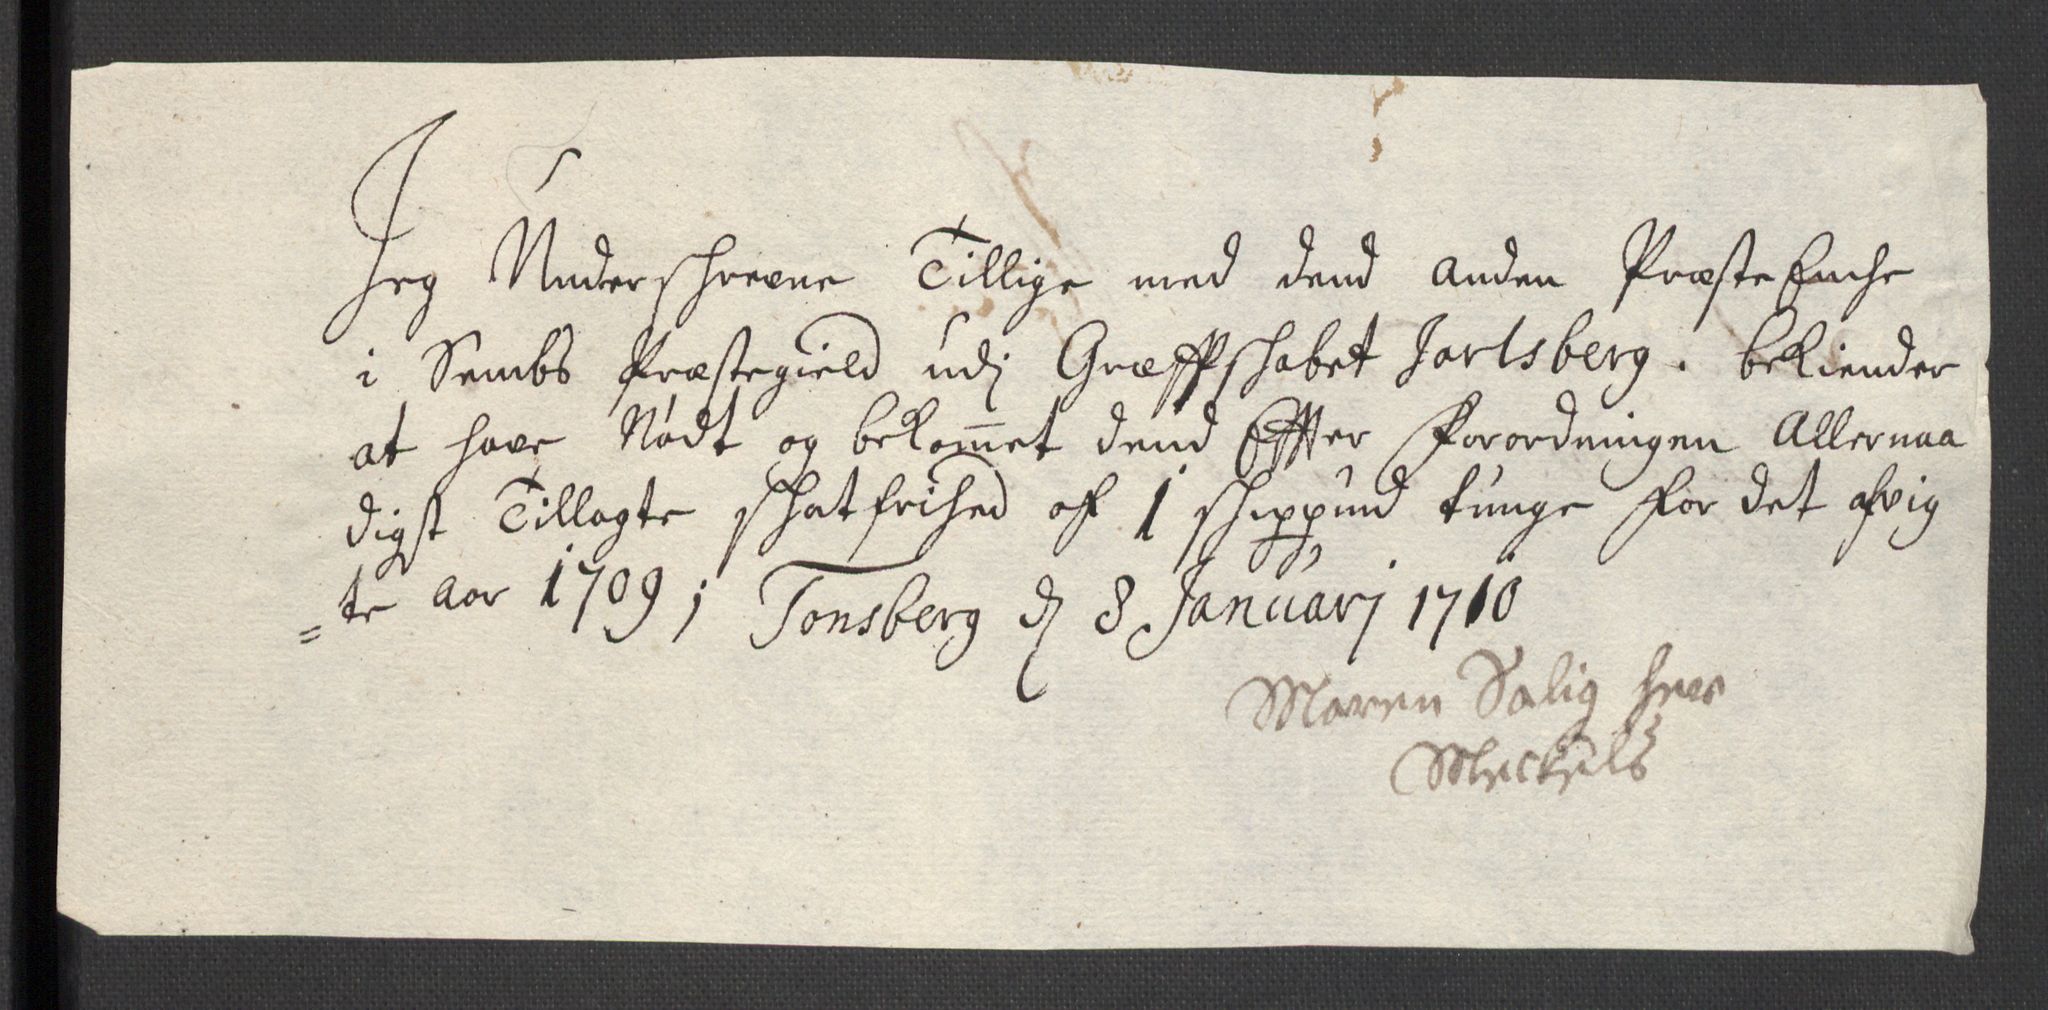 Jeg Underschrevne Tillige med dend anden Præste Enche
i Sembs Præstegield udj Græffschabet Jarlsberg. bekiender
at have Nødt og bekom̅et dend Effter Forordningen Allernaa
digst Tillagte schatfrihed af 1 schippund tunge for det afvig
=te aar 1709; Tonsberg dj 8 Januarj 1710
Maren Salig her
Meckels